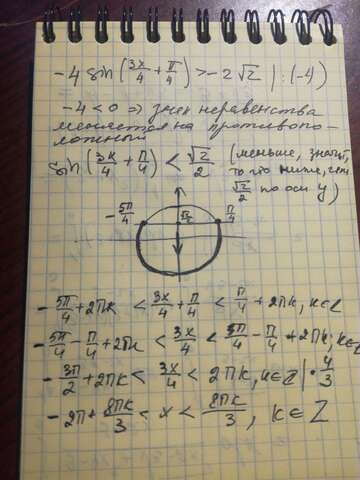 -4 sin(3x/4 + π/4) > -2√2 | : (-4)
-4 < 0 ⇒ знак неравенства
меняется на противопо-
ложный
sin(3x/4 + π/4) < √2/2 (меньше, значит,
то что ниже, чем
√2/2 по оси y)
-5π/4 √2/2 π/4
-5π/4 + 2πk < 3x/4 + π/4 < π/4 + 2πk, k∈Z
-5π/4 - π/4 + 2πk < 3x/4 < π/4 - π/4 + 2πk, k∈Z
-3π/2 + 2πk < 3x/4 < 2πk, k∈Z | · 4/3
-2π + 8πk/3 < x < 8πk/3, k∈Z